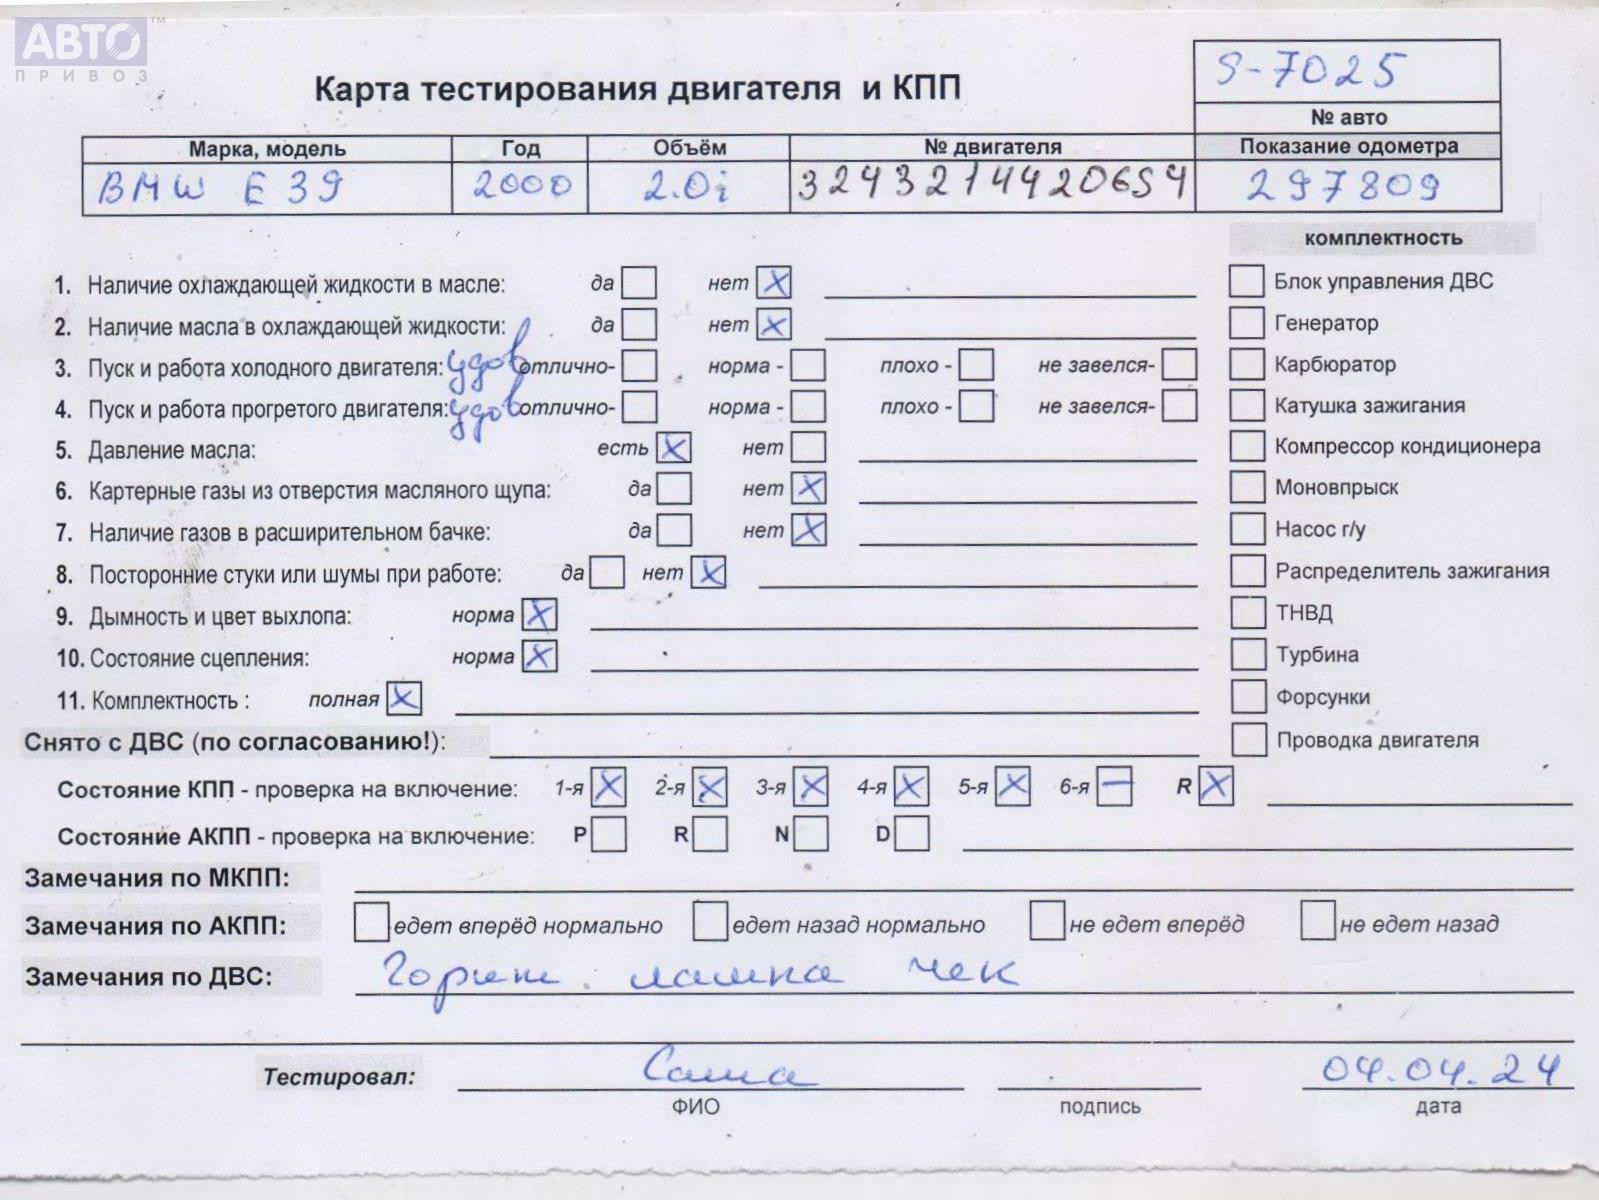 АВТО™
ПРИВОЗ
S-7025
Карта тестирования двигателя и КПП
№ авто
Марка, модель Год Объём № двигателя Показание одометра
BMW E39 2000 2.0i 3243214420654 297809
комплектность
1. Наличие охлаждающей жидкости в масле: да нет X Блок управления ДВС
2. Наличие масла в охлаждающей жидкости: да нет X Генератор
3. Пуск и работа холодного двигателя: удов отлично- норма - плохо - не завелся- Карбюратор
4. Пуск и работа прогретого двигателя: удов отлично- норма - плохо - не завелся- Катушка зажигания
5. Давление масла: есть X нет Компрессор кондиционера
6. Картерные газы из отверстия масляного щупа: да нет X Моновпрыск
7. Наличие газов в расширительном бачке: да нет X Насос г/у
8. Посторонние стуки или шумы при работе: да нет X Распределитель зажигания
9. Дымность и цвет выхлопа: норма X ТНВД
10. Состояние сцепления: норма X Турбина
11. Комплектность : полная X Форсунки
Снято с ДВС (по согласованию!): Проводка двигателя
Состояние КПП - проверка на включение: 1-я X 2-я X 3-я X 4-я X 5-я X 6-я — R X
Состояние АКПП - проверка на включение: P R N D
Замечания по МКПП:
Замечания по АКПП: едет вперёд нормально едет назад нормально не едет вперёд не едет назад
Замечания по ДВС: Горит лампа чек
Тестировал: Саша 04.04.24
ФИО подпись дата